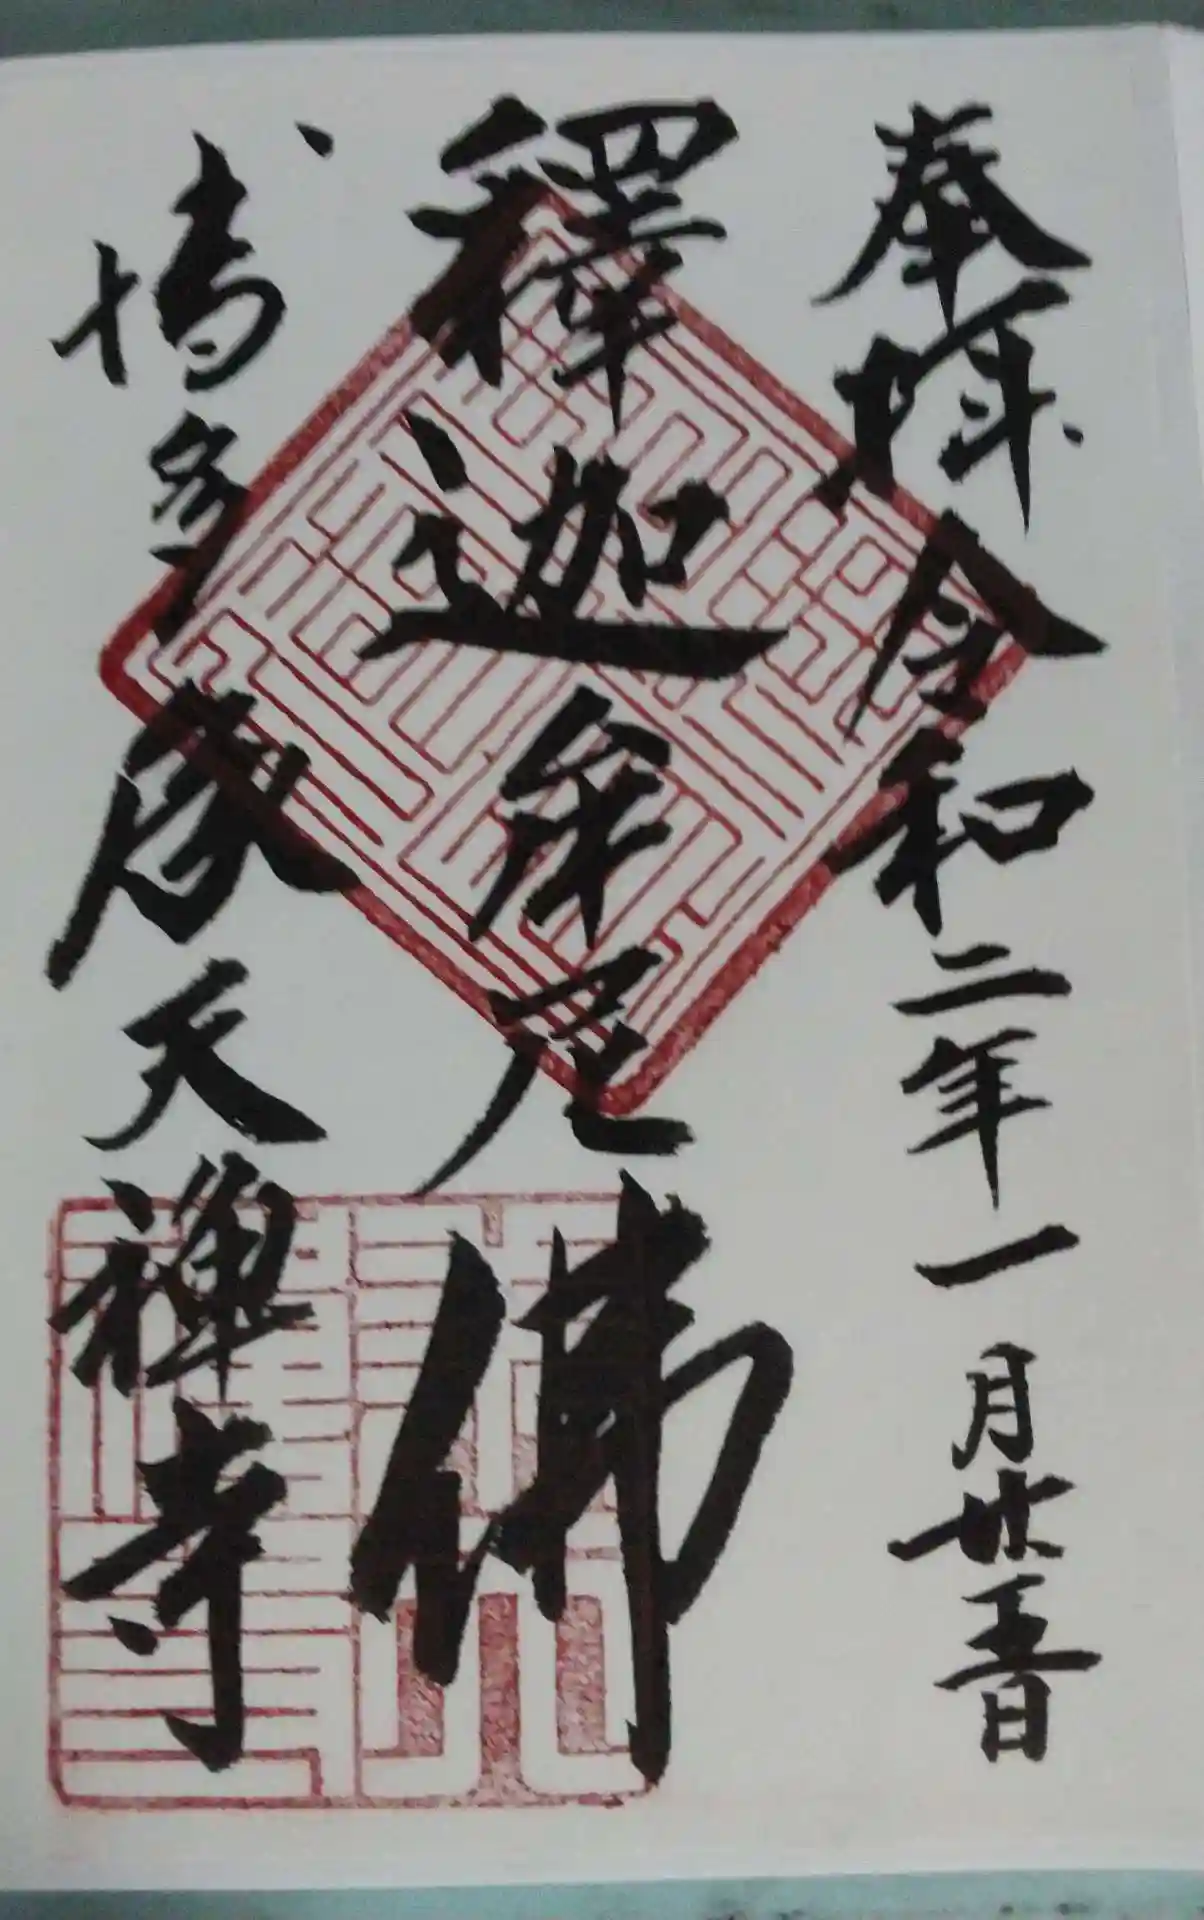 奉拜 令和二年一月廿五日
釋迦牟尼佛
博多 承天禪寺